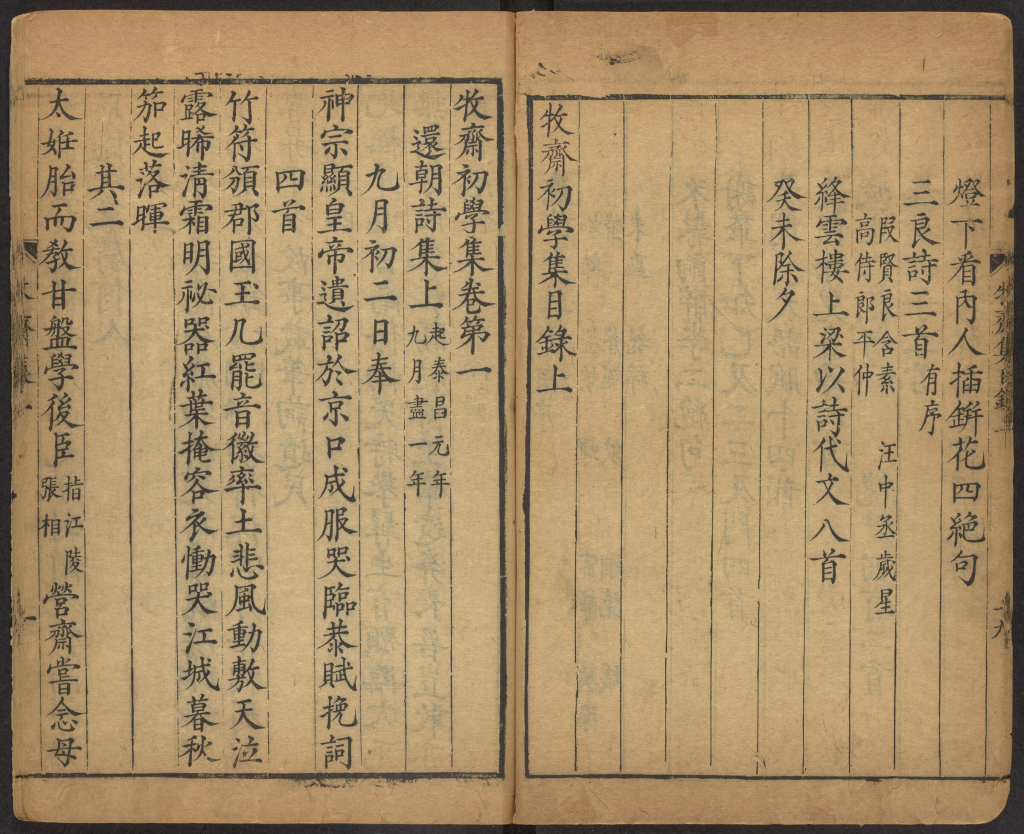 燈下看內人插缾花四絕句
三良詩三首 有序
段賢良含素 汪中丞歲星
高侍郎平仲
絳雲樓上梁以詩代文八首
癸未除夕
牧齋初學集目錄上
牧齋初學集卷第一
還朝詩集上 起泰昌元年九月盡一年
九月初二日奉
神宗顯皇帝遺詔於京口成服哭臨恭賦挽詞
四首
竹符頒郡國玉几罷音徽率土悲風動敷天泣
露晞清霜明祕器紅葉掩容衣慟哭江城暮秋
笳起落暉
其二
太姙胎而教甘盤學後臣 指江陵張相 營齋嘗念母